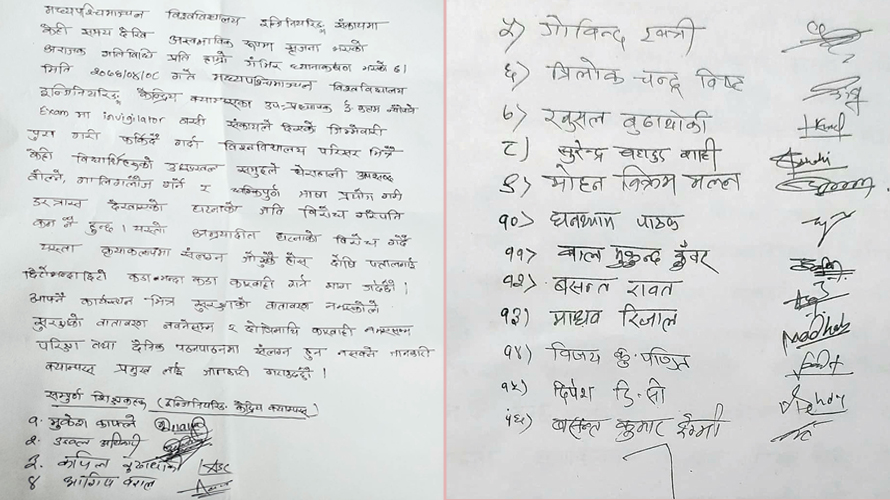 मध्यपश्चिमाञ्चल विश्वविद्यालय इन्जिनियरिङ्ग संकायमा
केही समय देखि अस्वभाविक रूपमा सृजना भएको
अराजक गतिविधि प्रति हाम्रो गंभिर ध्यानाकर्षण भएको छ।
मिति २०७७/०४/०८ गते मध्यपश्चिमाञ्चल विश्वविद्यालय
इन्जिनियरिङ्ग केन्द्रिय क्याम्पसका उप-प्राध्यापक ई.
Exam मा invigilator बसी संकायले दिएको जिम्मेवारी
पुरा गरी फर्किदै गर्दा विश्वविद्यालय परिसर भित्रै
केही विद्यार्थीहरुको समुहले घेराबन्दी अपशब्द
बोल्ने, गालिगलौज गर्ने र धम्किपुर्ण भाषा प्रयोग गरी
डर त्रास देखाएको घटनाको जति विरोध गरेपनि
कम नै हुन्छ। यस्तो अमर्यादीत घटनाको विरोध गर्दै
यस्ता क्रयाकलापमा संलग्न जोसुकै होस् दोषि पत्तालगाई
छिटोभन्दाछिटो कडा-भन्दा कडा कारवाही गर्न माग गर्दछौं।
आफ्नै कार्यस्थान भित्र सुरक्षाको वातावरण नभएकोले
सुरक्षाको वातावरण नबनेसम्म र दोषिमाथि कारवाही नभएसम्म
परिक्षा तथा दैनिक पठनपाठनमा संलग्न हुन नसक्ने जानकारी
क्याम्पस प्रमुख लाई जानकारी गराउदछौं।
सम्पुर्ण शिक्षकहरु (इन्जिनियरिङ केन्द्रिय क्याम्पस)
१. मुकेश काफ्ले
२. उज्वल अधिकारी
३. कपिल बुढाथोकी
४ आशिष बराल
५) गोविन्द खत्री
६) त्रिलोक चन्द्र विष्ट
७) खुसल बुढाथोकी
८) सुरेन्द्र बहादुर शाही
९) मोहन विक्रम मल्ल
१०) घनश्याम पाठक
११) बाल मुकुन्द कुँवर
१२) बसन्त रावत
१३) माधव रिजाल Madhab
१४) विजय कु. पण्डित
१५) दिपेश डि. सी
१६) बसन्त कुमार रेग्मी